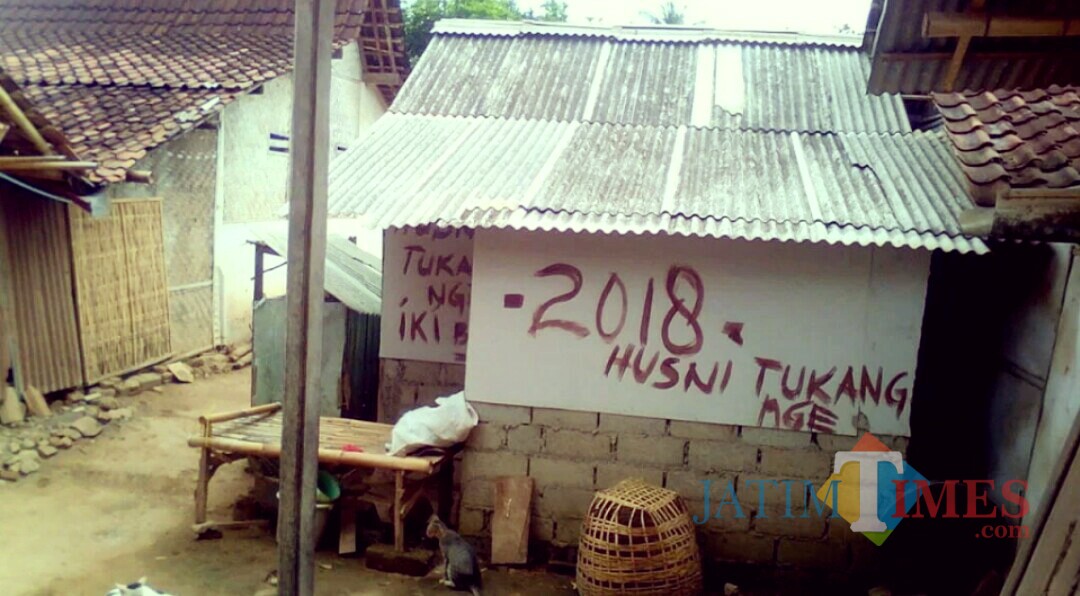 TUKA
NG
IKI B
- 2018 -
HUSNI TUKANG
AGE
JATIMTIMES
.com